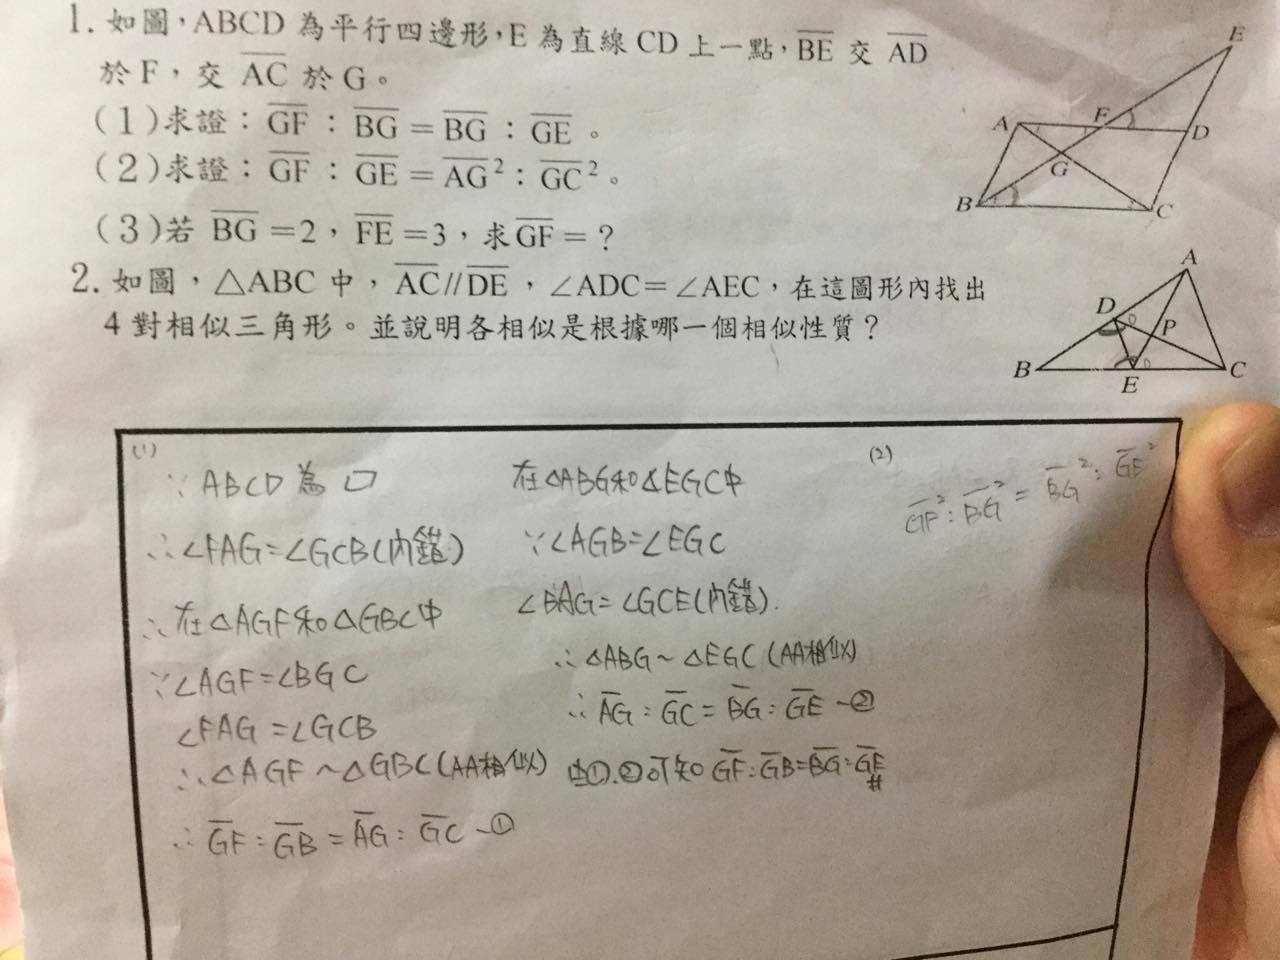 1. 如圖，ABCD 為平行四邊形，E 為直線 CD 上一點，BE 交 AD
於 F，交 AC 於 G。
(1)求證：GF：BG＝BG：GE。
(2)求證：GF：GE＝AG²：GC²。
(3)若 BG＝2，FE＝3，求GF＝？
2. 如圖，△ABC 中，AC//DE，∠ADC＝∠AEC，在這圖形內找出
4 對相似三角形。並說明各相似是根據哪一個相似性質？
E
F
A
D
G
B
C
A
D
P
B
E
C
(1)
∵ ABCD 為 ▱
∴∠FAG=∠GCB(內錯)
∴在△AGF和△GBC中
∵∠AGF=∠BGC
∠FAG=∠GCB
∴△AGF~△GBC(AA相似)
∴GF:GB=AG:GC -①
在△ABG和△EGC中
∵∠AGB=∠EGC
∠BAG=∠GCE(內錯).
∴△ABG~△EGC(AA相似)
∴AG:GC=BG:GE -②
由①.②可知 GF:GB=BG:GE #
(2)
GF²:BG²=BG²:GE²